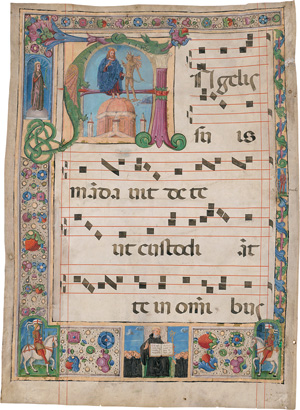 ANgelis
su is
mãda uit de te
ut custodi ãt
te in om̃i bus